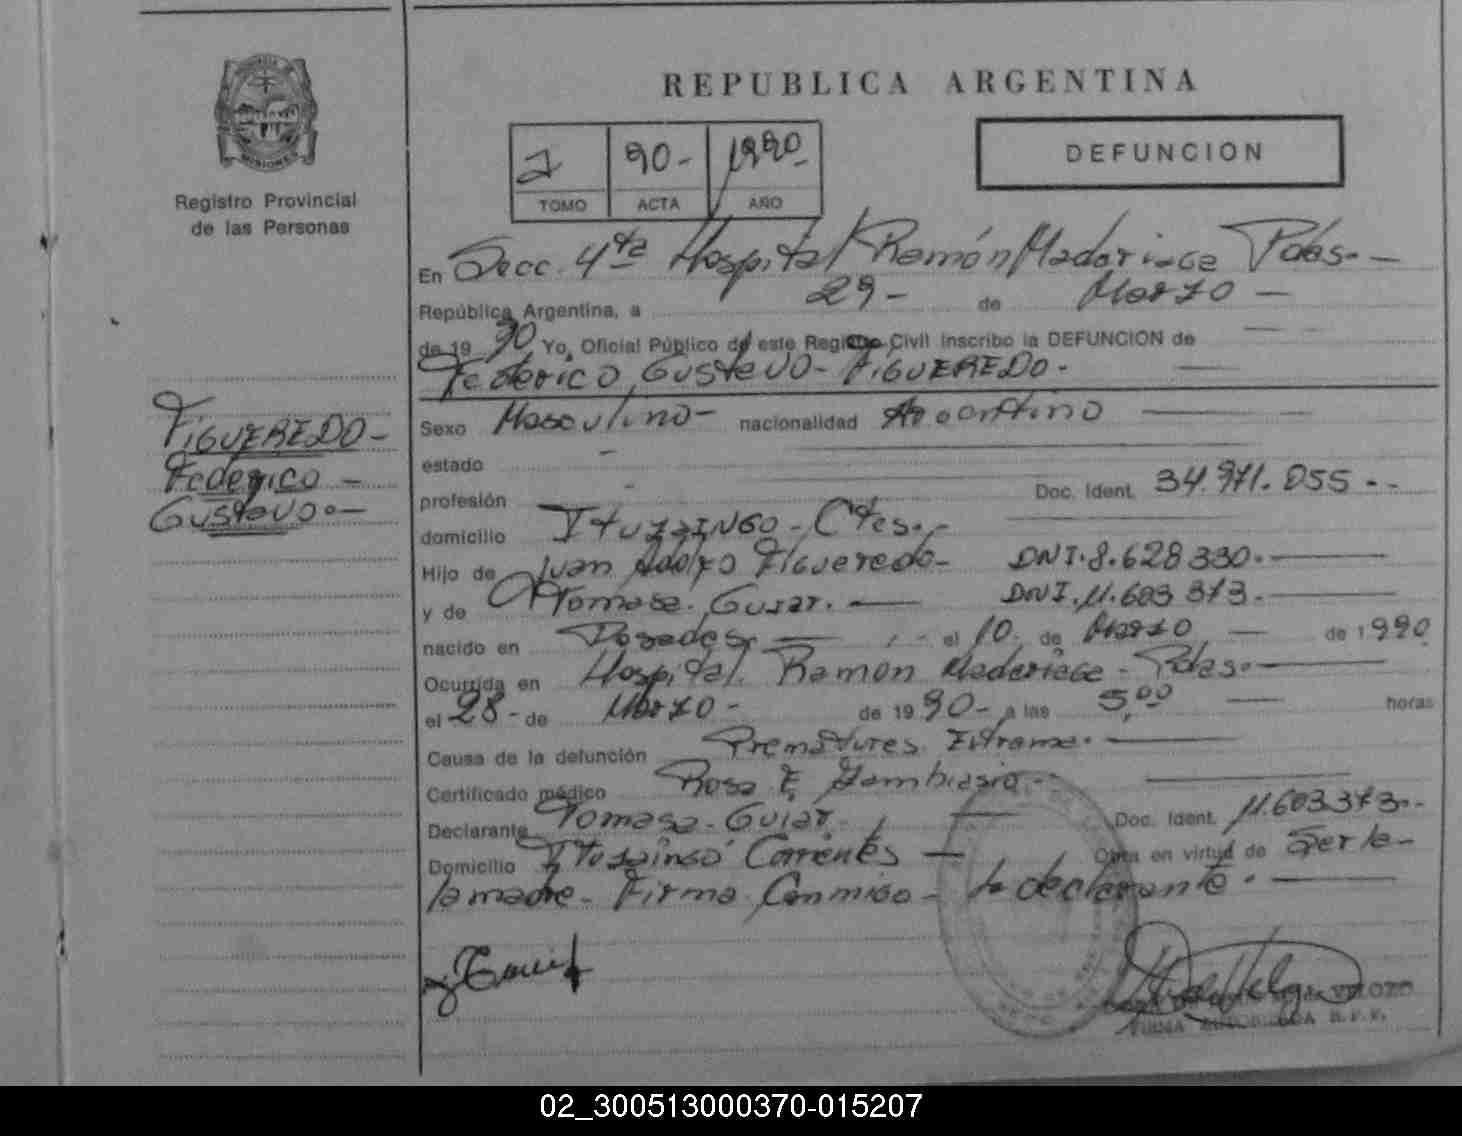 REPUBLICA ARGENTINA
PROVINCIA DE
MISIONES
Registro Provincial
de las Personas
90- 1990-
TOMO ACTA AÑO
DEFUNCION
En Secc. 4ta Hospital Ramón Madariaga Pdas.-
República Argentina, a 29- de Marzo -
de 1990 Yo, Oficial Público de este Registro Civil inscribo la DEFUNCION de
Federico Gustavo- FIGUEREDO-
FIGUEREDO-
Federico -
Gustavo.-
Sexo Masculino- nacionalidad Argentino
estado -
profesión - Doc. Ident. 34.971.055.-
domicilio ITUZAINGO-Ctes.-
Hijo de Juan Adolfo Figueredo- DNI.8.628330.-
y de Tomasa. Guiar.- DNI.11.603373.-
nacido en Posadas, - el 10 de Marzo - de 1990
Ocurrida en Hospital. Ramon Madariaga- Pdas.-
el 28- de Marzo- de 1990- a las 5,00 - horas
Causa de la defunción Prematurez
Certificado médico Rosa E,
Declarante Tomasa. Guiar Doc. Ident. 11.603373.-
Domicilio Ituzaingó Corrientes - Obra en virtud de Ser la-
la madre- Firma Conmigo- la declarante.-
VELOZO
FIRMA AUTORIZADA R.P.P.
02_300513000370-015207